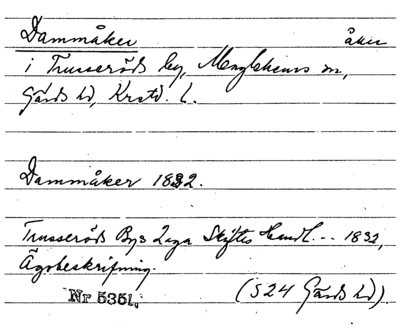 Dammåker åker
i Trusseröds by, Maglehems sn,
Gärds hd, Krstd. l.
Dammåker 1832.
Trusseröds Bys Laga Skiftes Handl. -- 1832,
Ägobeskrifning.
Nr 5351. (S24 Gärds hd).